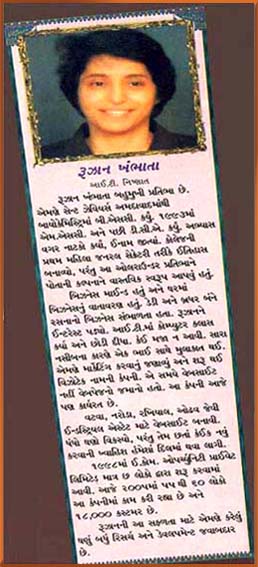 રૂઝાન ખંભાતા
આઈ.ટી. નિષ્ણાત
રૂઝાન ખંભાતા બહુમુખી પ્રતિભા છે.
એમણે સેન્ટ ઝેવિયર્સ અમદાવાદમાંથી
બાયોકેમિસ્ટ્રિમાં બી.એસસી. કર્યું. ૧૯૯૩માં
એમ.એસસી. અને પછી ટી.સી.એ. કર્યું. અભ્યાસ
વગર નાટકો કર્યાં, ઈનામ જીત્યાં. કોલેજની
પ્રથમ મહિલા જનરલ સેક્રેટરી તરીકે ઈતિહાસ
બનાવ્યો, પરંતુ આ ઓલરાઉન્ડર પ્રતિભાને
પોતાની કલ્પનાને વાસ્તવિક સ્વરૂપ આપવું હતું.
બિઝનેસ માઈન્ડ હતું અને ઘરમાં
બિઝનેસનું વાતાવરણ હતું. ડેડી અને બ્રધર બંને
રસનાનો બિઝનેસ સંભાળતા હતા. રૂઝાનને
ઈન્ટરેસ્ટ પડ્યો. આઈ.ટી.માં કોમ્પ્યુટર ક્લાસ
કર્યા અને છોડી દીધા. કંઈ મજા ન આવી. સારા
નસીબના કારણે એક ભાઈ સાથે મુલાકાત થઈ.
એમણે માર્કેટિંગ કરવાનું જણાવ્યું અને શરૂ થઈ
વિઝોટેક નામની કંપની. એ સમયે વેબસાઈટ
નહીં વેબપેજનો જમાનો હતો. આ કંપની આજે
પણ કાર્યરત છે.
વટવા, નરોડા, રખિયાલ, ઓઢવ જેવી
ઈન્ડસ્ટ્રિયલ એસ્ટેટ માટે વેબસાઈટ બનાવી.
ધંધો ઘણો વિકસ્યો. પરંતુ તેમ છતાં કંઈક નવું
કરવાની ખ્વાહિશ હંમેશાં દિલમાં થવા લાગી.
૧૯૯૮માં ઈ.કોમ. ઓપર્ચ્યુનિટિ પ્રાઈવેટ
લિમિટેડ માત્ર છ લોકો દ્વારા શરૂ કરવામાં
આવી. આજે ૨૦૦૫માં ૫૫ થી ૬૦ લોકો
આ કંપનીમાં કામ કરી રહ્યા છે અને
૧૮,૦૦૦ કસ્ટમર છે.
રૂઝાનની આ સફળતા માટે એમણે કરેલું
ઘણું બધું રિસર્ચ અને ડેવલપમેન્ટ જવાબદાર
છે.